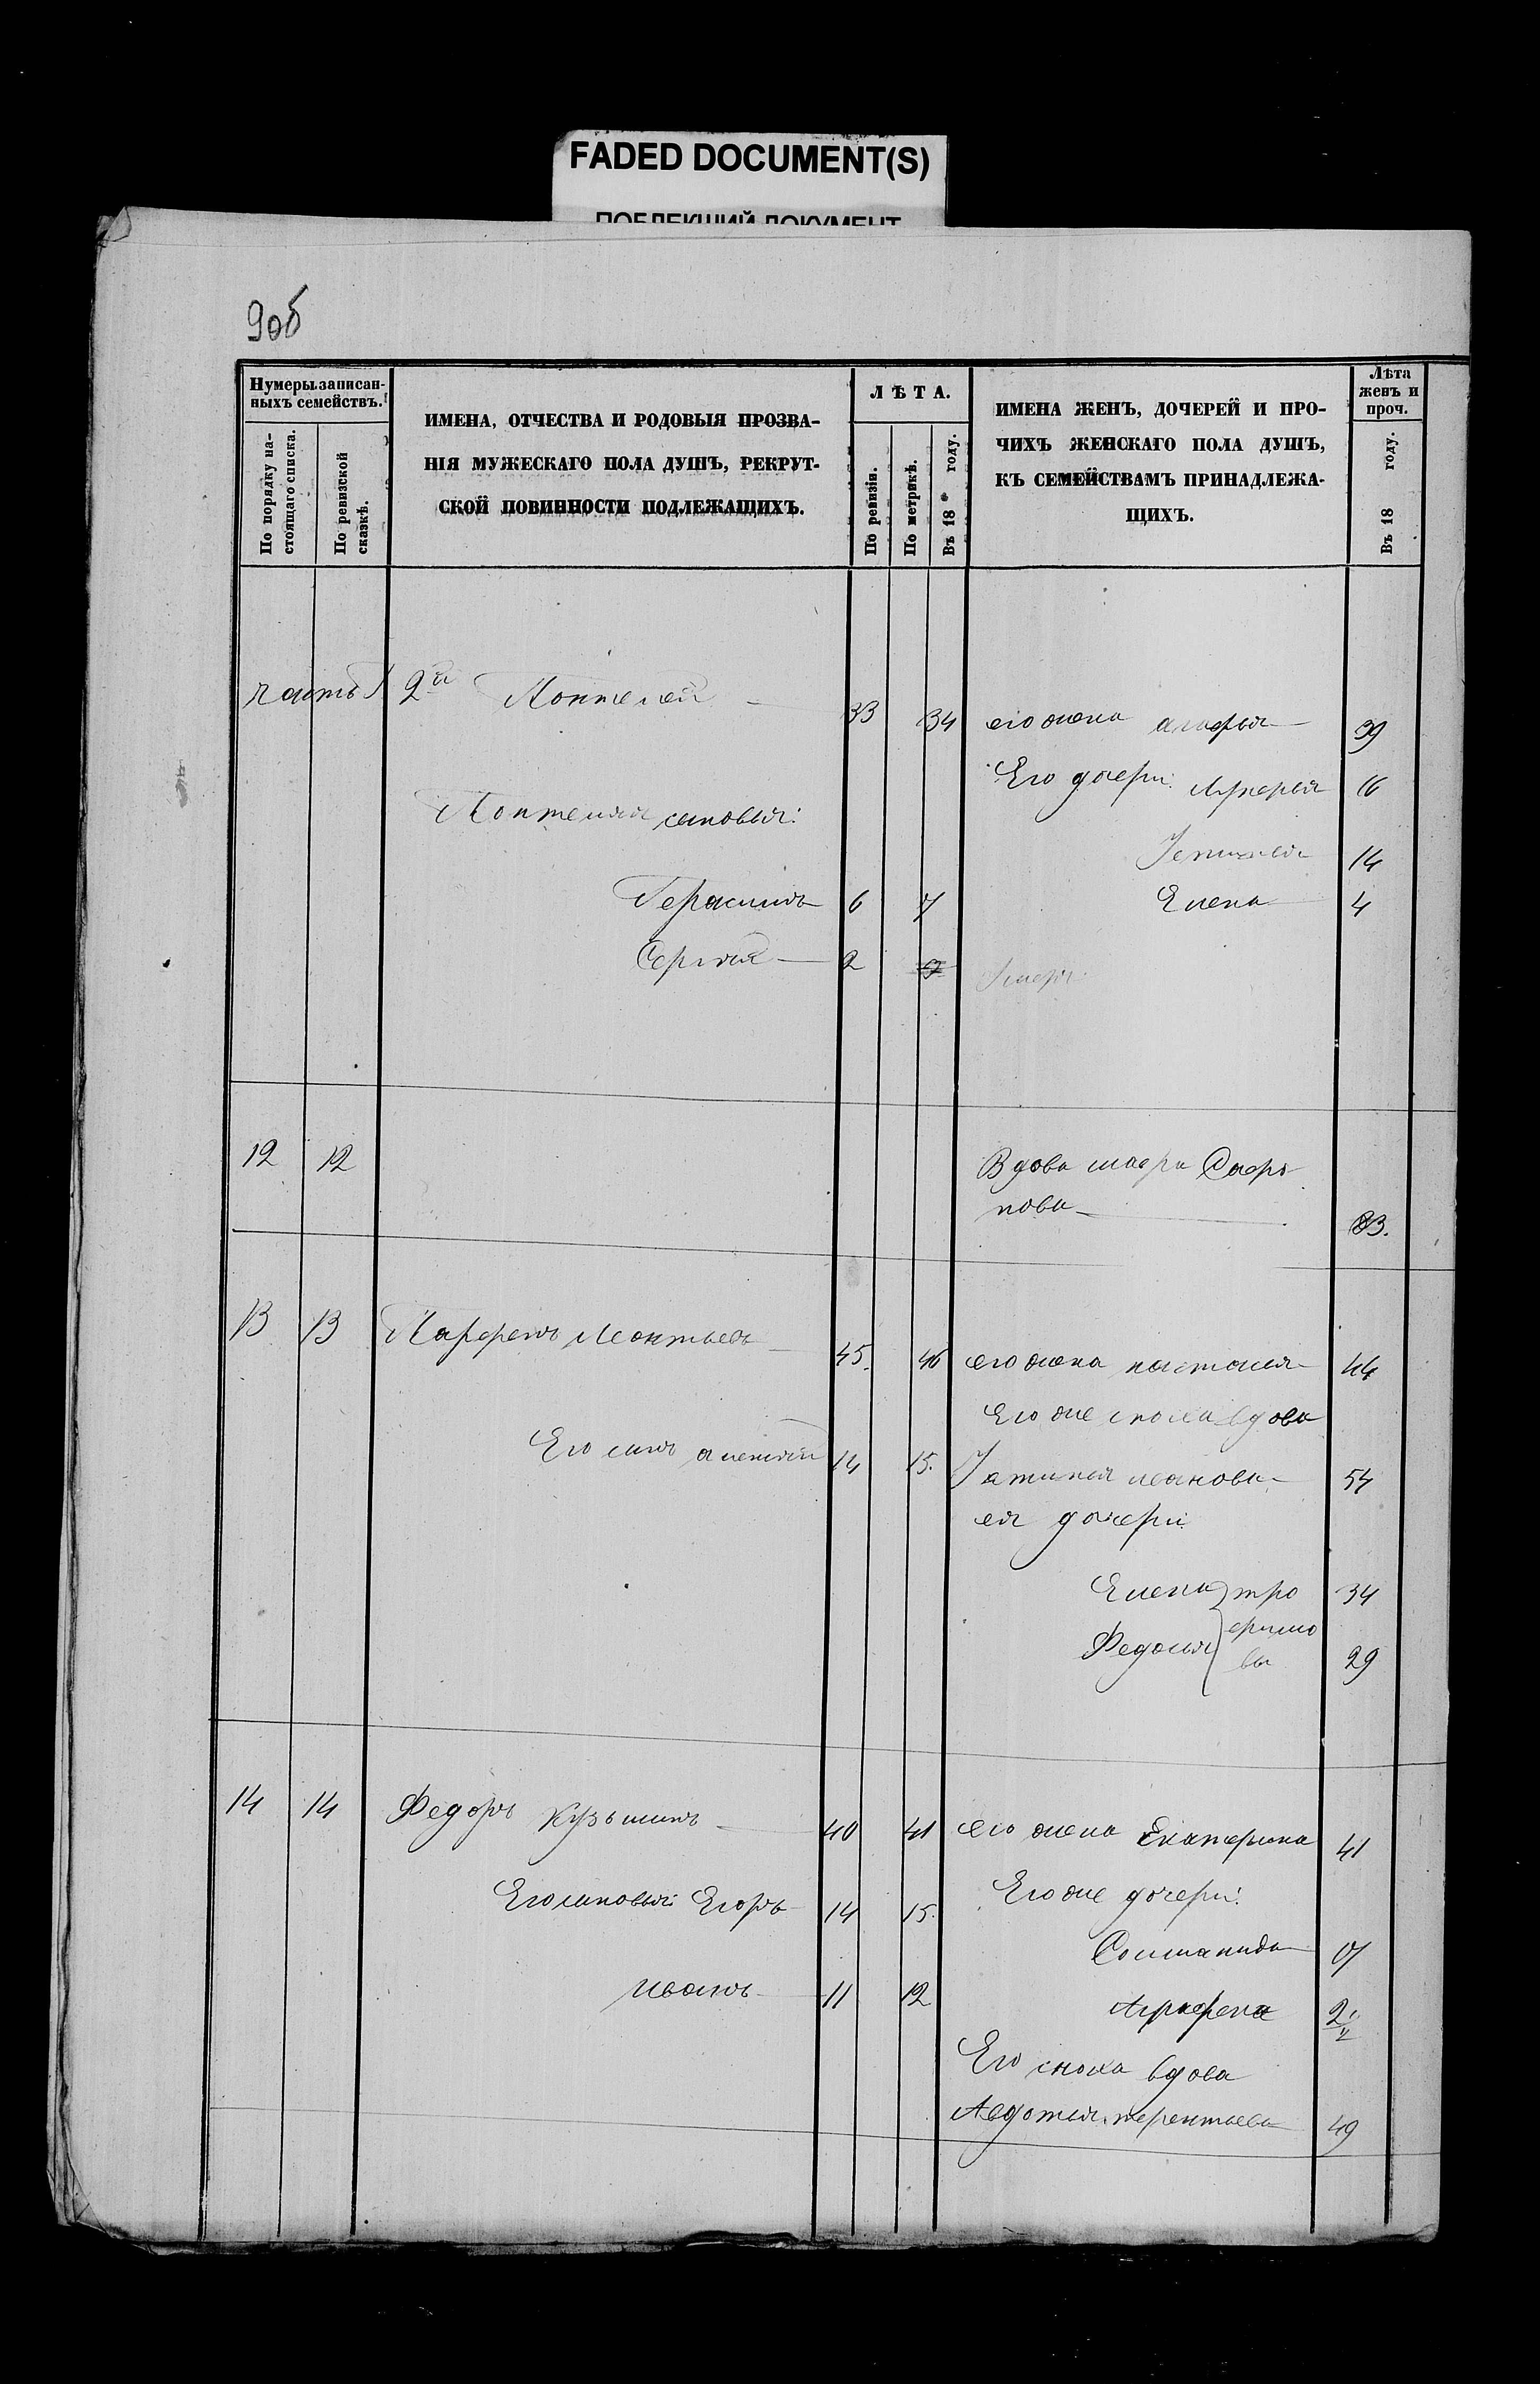 FADED DOCUMENT(S)
ПОБЛЕКШИЙ ДОКУМЕНТ
9об
Нумеры записан-
ныхъ семействъ.
По порядку на-
стоящаго списка.
По ревизской
сказкѣ.
ИМЕНА, ОТЧЕСТВА И РОДОВЫЯ ПРОЗВА-
НІЯ МУЖЕСКАГО ПОЛА ДУШЪ, РЕКРУТ-
СКОЙ ПОВИННОСТИ ПОДЛЕЖАЩИХЪ.
ЛѢТА.
По ревизіи.
По метрикѣ.
Въ 18 году.
ИМЕНА ЖЕНЪ, ДОЧЕРЕЙ И ПРО-
ЧИХЪ ЖЕНСКАГО ПОЛА ДУШЪ,
КЪ СЕМЕЙСТВАМЪ ПРИНАДЛЕЖА-
ЩИХЪ.
Лѣта
женъ и
проч.
Въ 18 году.
часть 2я Понтелей 33 34 его жена 39
Его дочери: 16
Понтелия сыновья:
14
Герасимъ 6 7 Елена 4
Сергей 2
12 12 Вдова Софро
нова 83.
13 13 Парфенъ Леонтьевъ 45. 46 его жена настасья 44
Его же сноха вдова
Его сынъ алексей 14 15. иванова 54
ея дочери:
Елена тро 34
Федосья фимо
вы 29
14 14 Федоръ Кузьминъ 40 41 его жена Екатерина 41
Его сыновья: Егоръ 14 15. Его же дочери:
Соломанида 7
Иванъ 11 12 Аграфена 2
Его сноха вдова
Авдотья терентьева 49